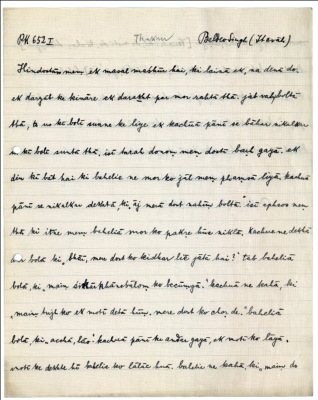 PK 652 I Thakur Baldeo Singh (Itavah)
Hindostān mem ek masal mashūr hai, ki lainā ek, na denā do.
ek daryāt ke kināre ek darakht par mor rahtā thā, jab vah boltā
thā, to us kī bolī sunne ke liye ek kachuā pānī se bāhar nikalkar
us kī bolī suntā thā, isī tarah donoṃ mem dostī baṛh gayī. ek
din kī bāt hai ki baheliye ne mor ko jāl mem phaṃsā liyā, kachuā
pānī se nikalkar dekhtā, ki "āj merā dost nahīṃ boltā" isī aphsos mem
thā, ki itne mem baheliā mor ko pakṛe hue niklā. kachue ne dekhā
ko bolā ki, "bhāī, mere dost ko kidhar liē jātā hai?" tab baheliā
bolā, ki "maiṃ becūṃgā." kachuā ne kahā, ki
"maiṃ tujh ko ek motī detā hūṃ, mere dost ko choṛ de." baheliā
bolā, ki "acchā, lāo." kachuā pānī ke andar gayā, ek motī ko lāyā.
motī ko dekhte hī baheliē ko lālac huā. baheliē ne kahā, ki "maiṃ do